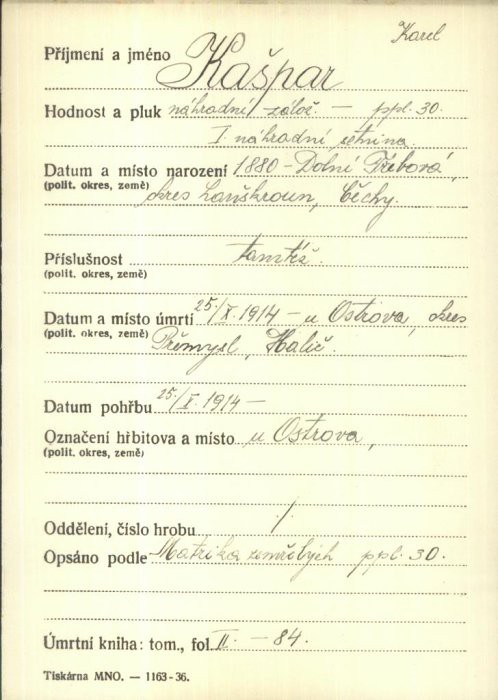 Karel
Příjmení a jméno Kašpar
Hodnost a pluk náhradní zálož. — ppl. 30.
I náhradní setnina
Datum a místo narození 1880 - Dolní Třebová,
(polit. okres, země) okres Lanškroun, Čechy.
Příslušnost tamtéž.
(polit. okres, země)
Datum a místo úmrtí 25./X. 1914 — u Ostrova, okres
(polit. okres, země) Přemysl, Halič.
Datum pohřbu 25./X. 1914 —
Označení hřbitova a místo u Ostrova,
(polit. okres, země)
Oddělení, číslo hrobu /
Opsáno podle Matrika zemřelých ppl. 30.
Úmrtní kniha: tom., fol. II. — 84.
Tiskárna MNO. — 1163-36.